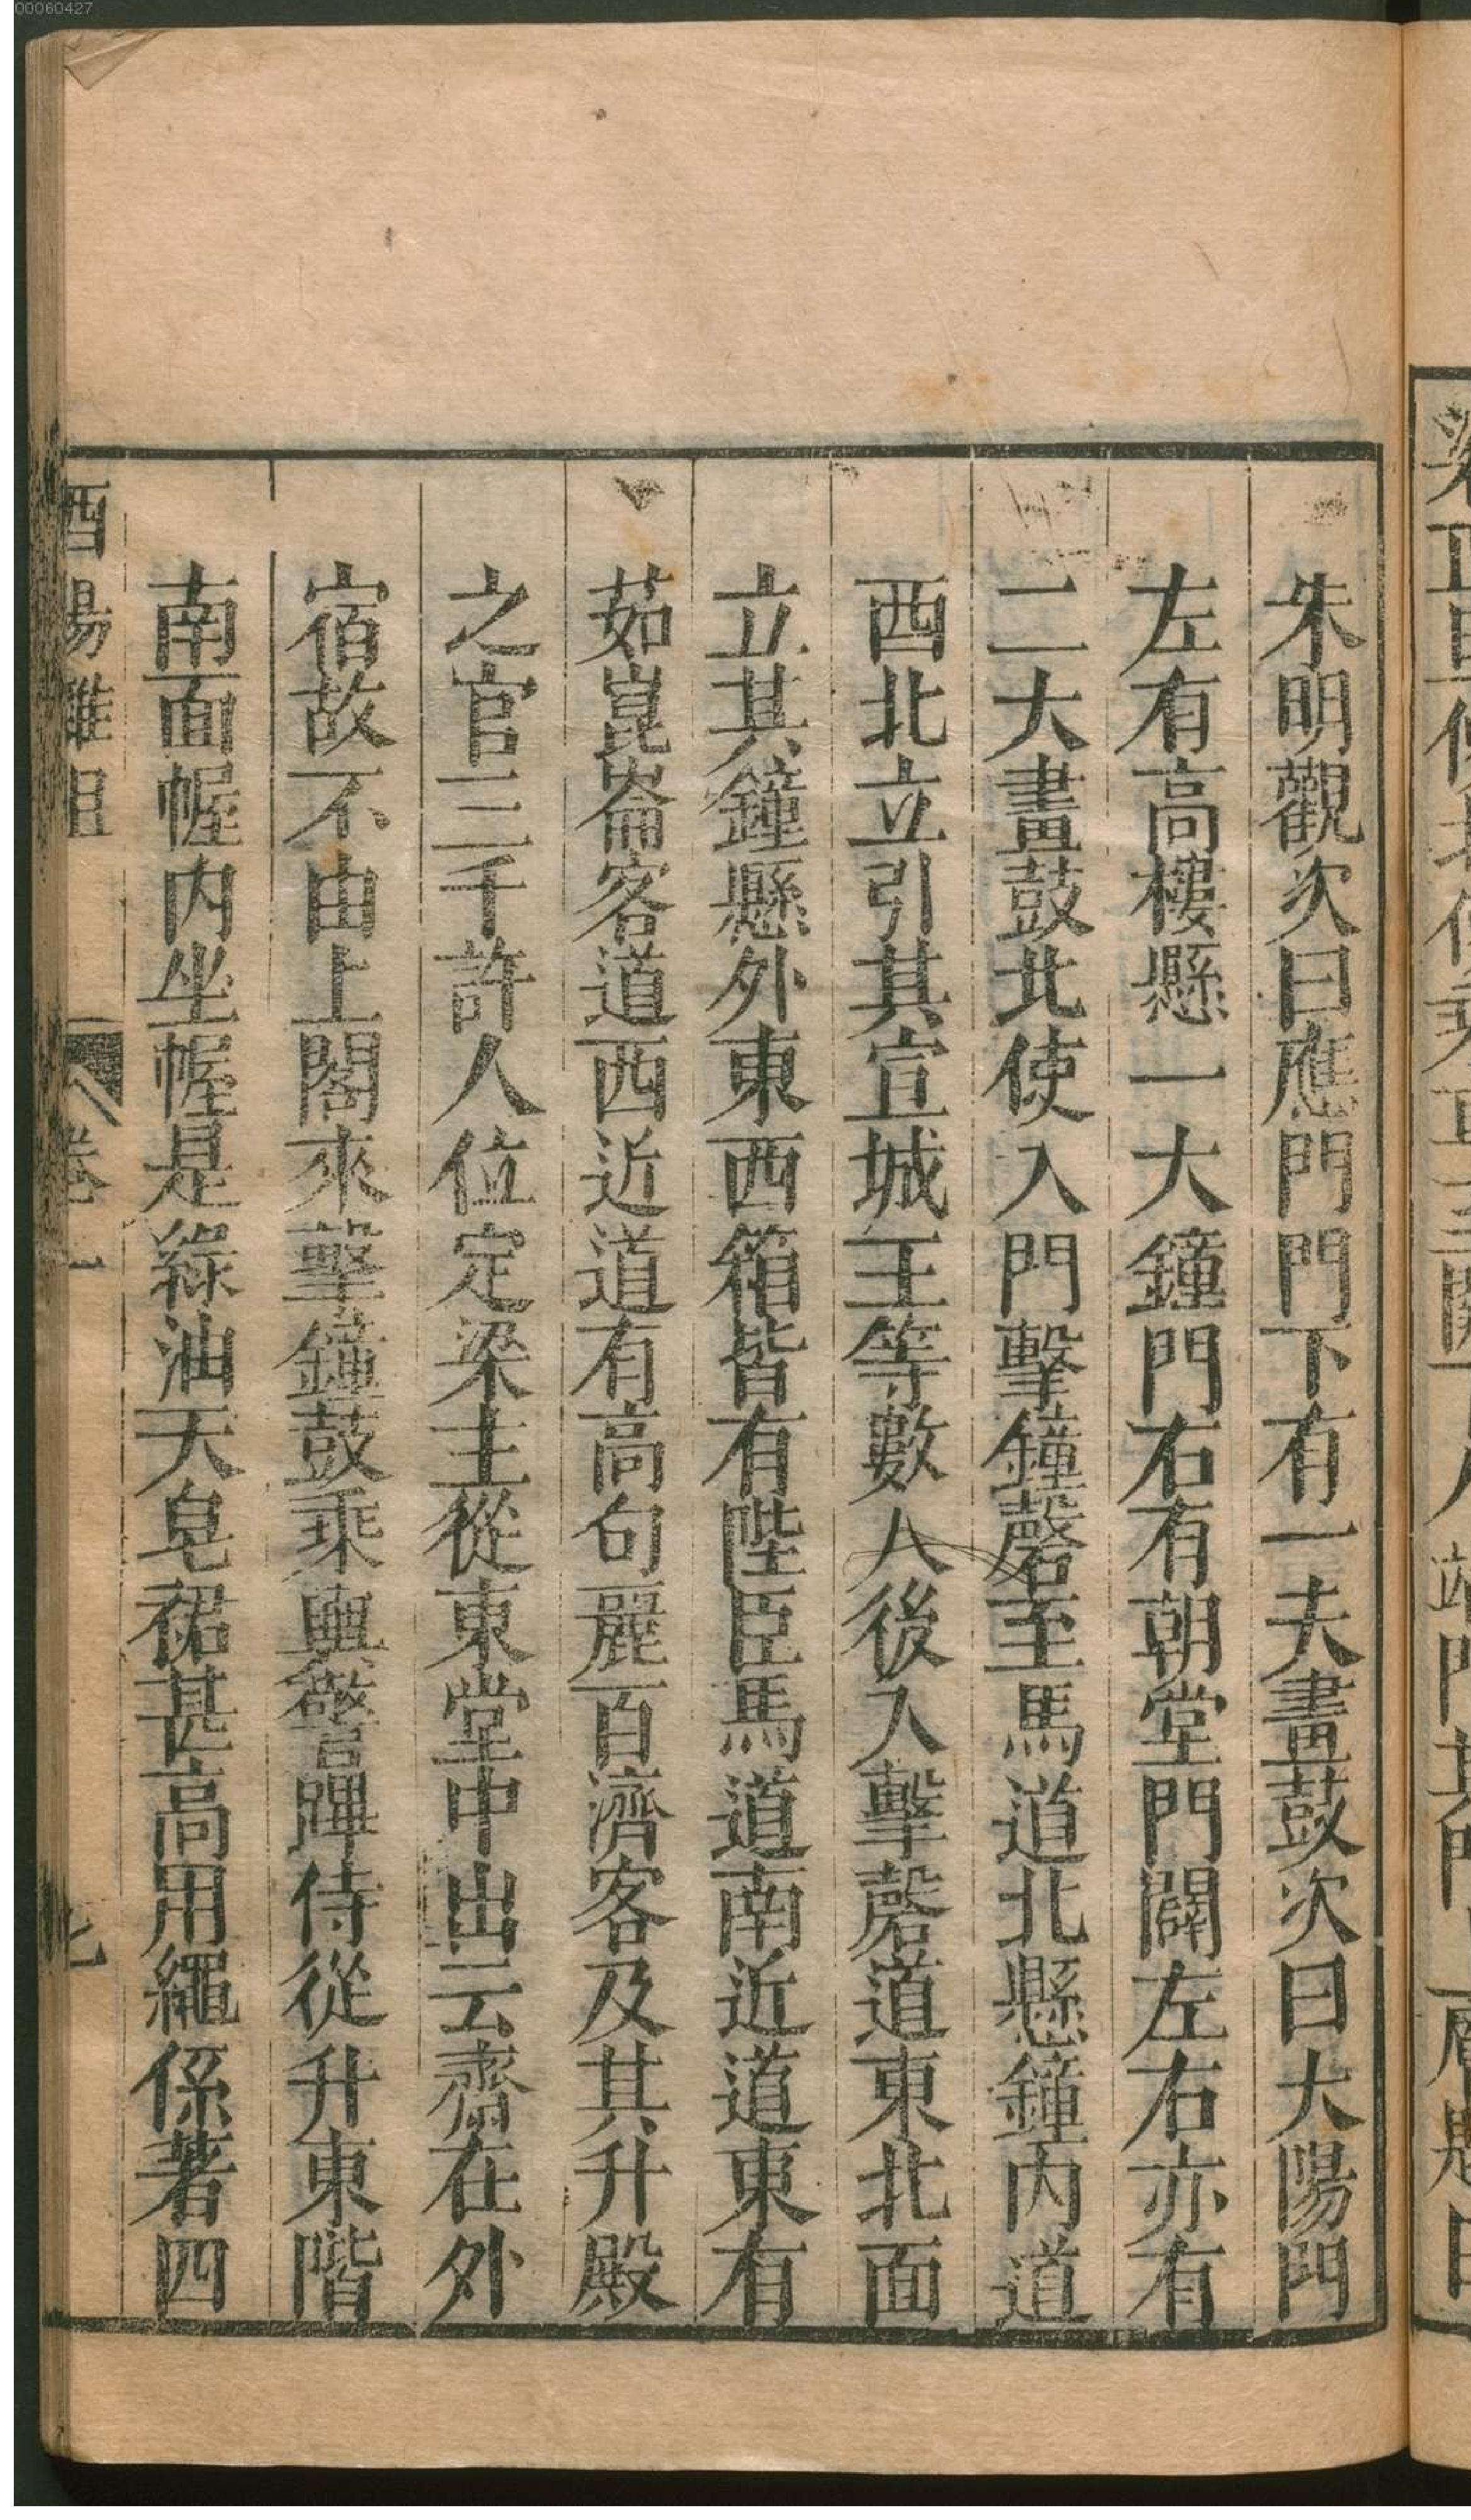 00060427
朱明觀次曰應門門下有一夫畫鼓次曰大陽門
左有高樓懸一大鐘門右有朝堂門闢左右亦有
二大畫鼓北使入門擊鐘磬至馬道北懸鐘內道
西北立引其宣城王等數人後入擊磬道東北面
立其鐘懸外東西箱皆有陛臣馬道南近道東有
茹崑崙客道西近道有高句麗百濟客及其升殿
之官三千許人位定梁主從東堂中出云齋在外
宿故不由上閣來擊鐘鼓乘輿警蹕侍從升東階
南面幄內坐幄是綠油天皂裙甚高用繩係著四
酉陽雜俎 卷一